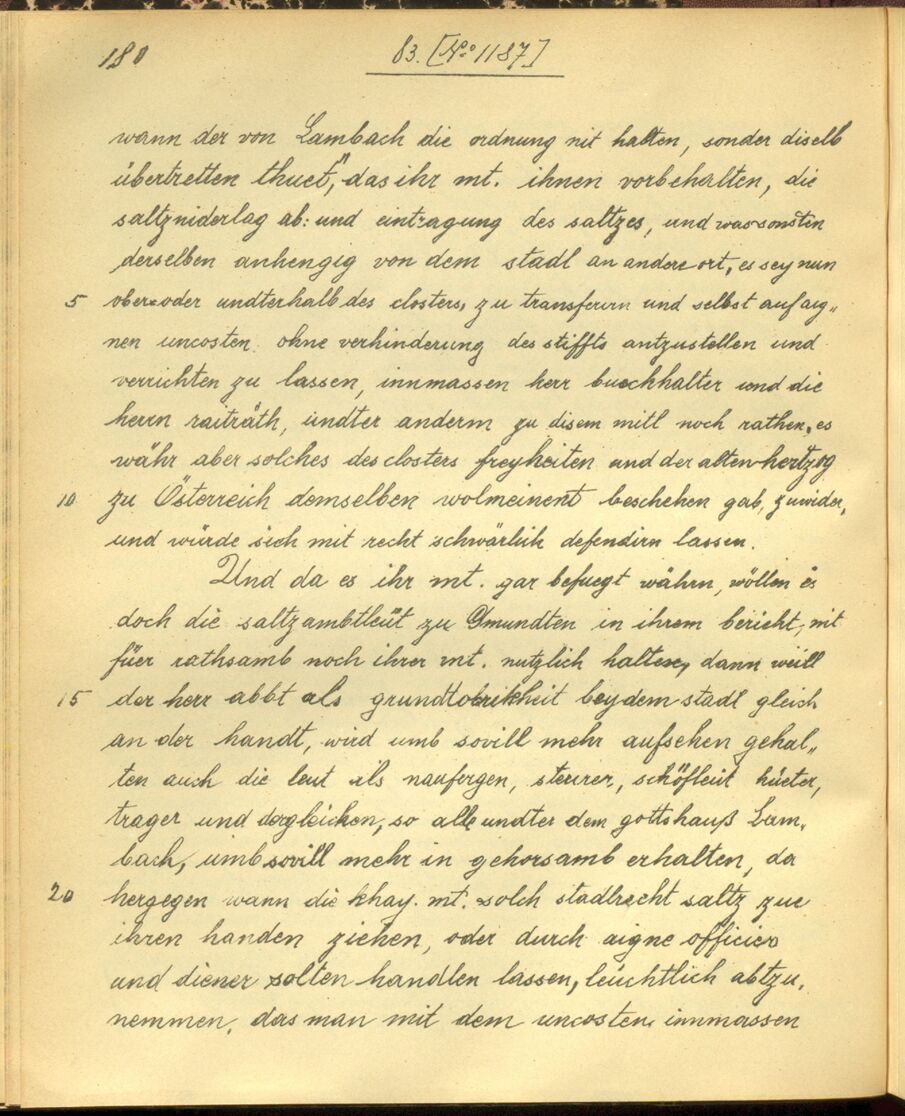 180
83. [No 1187]
wann der von Lambach die ordnung nit halten, sonder diselb
übertretten thuet", das ihr mt. ihnen vorbehalten, die
saltzniderlag ab: und eintragung des saltzes, und was sonsten
derselben anhengig von dem stadl an andere ort, es sey nun
5 ober oder undterhalb des closters, zu transferirn und selbst auf aig„
nen uncosten ohne verhinderung des stiffts antzustellen und
verrichten zu lassen, innmassen herr buechhalter und die
herrn raiträth, undter anderm zu disem mitl noch rathen, es
währ aber solches des closters freyheiten und der alten hertzog
10 zu Österreich demselben wolmeinent beschehen gab, zuwider,
und würde sich mit recht schwärlich defendirn lassen.
Und da es ihr mt. gar befuegt währn, wöllen es
doch die saltzambtleüt zu Gmundten in ihrem bericht, nit
füer rathsamb noch ihrer mt. nutzlich halten, dann weill
15 der herr abbt als grundtobrikheit bey dem stadl gleich
an der handt, wird umb sovill mehr aufsehen gehal„
ten auch die leut als naufergen, steürer, schöfleüt hüeter,
trager und dergleichen, so alle undter dem gottshauß Lam„
bach, umb sovill mehr in gehorsamb erhalten, da
20 hergegen wann die khay. mt. solch stadlrecht saltz zue
ihren handen ziehen, oder durch aigne officier
und diener solten handlen lassen, leüchtlich abtzu„
nemmen, das man mit dem uncosten innmassen